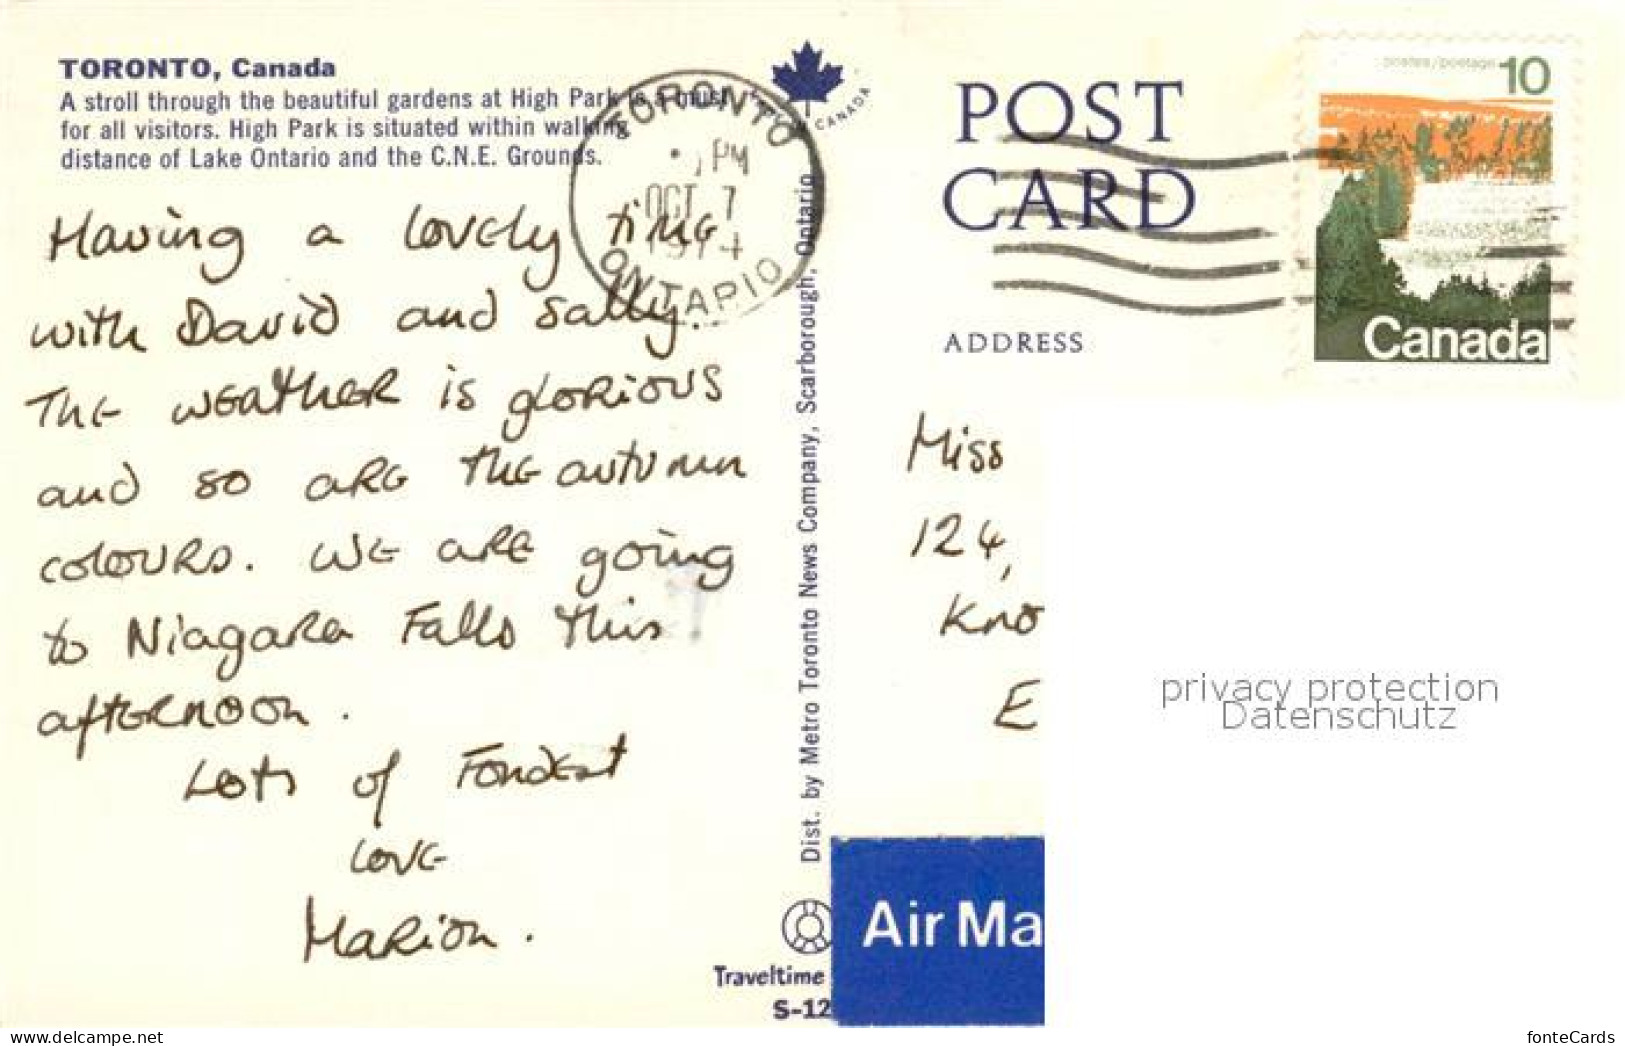 TORONTO, Canada
A stroll through the beautiful gardens at High Park is a must
for all visitors. High Park is situated within walking
distance of Lake Ontario and the C.N.E. Grounds.
Having a lovely time
with David and Sally.
The weather is glorious
and so are the autumn
colours. We are going
to Niagara Falls this
afternoon.
Lots of Fondest
love
Marion.
TORONTO
PM
OCT 7
1974
ONTARIO
CANADA
Dist. by Metro Toronto News Company, Scarborough, Ontario
Traveltime
S-12
POST
CARD
ADDRESS
postes/postage 10
Canada
Miss
124,
Kno
E
Air Ma
privacy protection
Datenschutz
www.delcampe.net
fonteCards